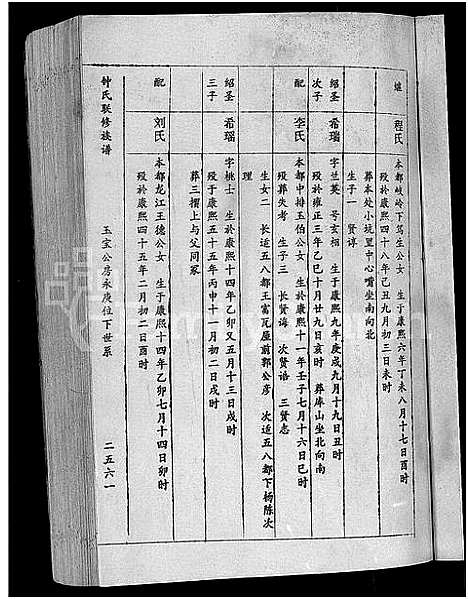 继 程氏 本都岐岭下笃生公女 生于康熙六年丁未八月十七日酉时
殁於康熙四十八年己丑九月初三日未时
葬本处小坑里中心嘴坐南向北
生子一 贤谆
绍圣次子 希瑞 字兰英 号亥 生于康熙九年庚戌九月十九日丑时
殁於雍正三年乙巳十月廿九日亥时 葬库山坐北向南
配 李氏 本都中排玉伯公女 生於康熙十一年壬子七月十六日巳时
殁葬失考 生子三 长贤诲 次贤语 三贤志
生女二 长适五八都王富瓦屋前郭公彦 次适五八都下杨陈次
理
绍圣三子 希瑶 字桃士 生於康熙十四年乙卯又五月十三日戌时
殁于康熙五十五年丙申十一月初二日戌时
葬三摺上与父同冢
配 刘氏 本都龙江王德公女 生于康熙十四年乙卯七月十四日卯时
殁於康熙四十五年二月初二日酉时
钟氏联修族谱 玉宝公房永庚位下世系 二五六一